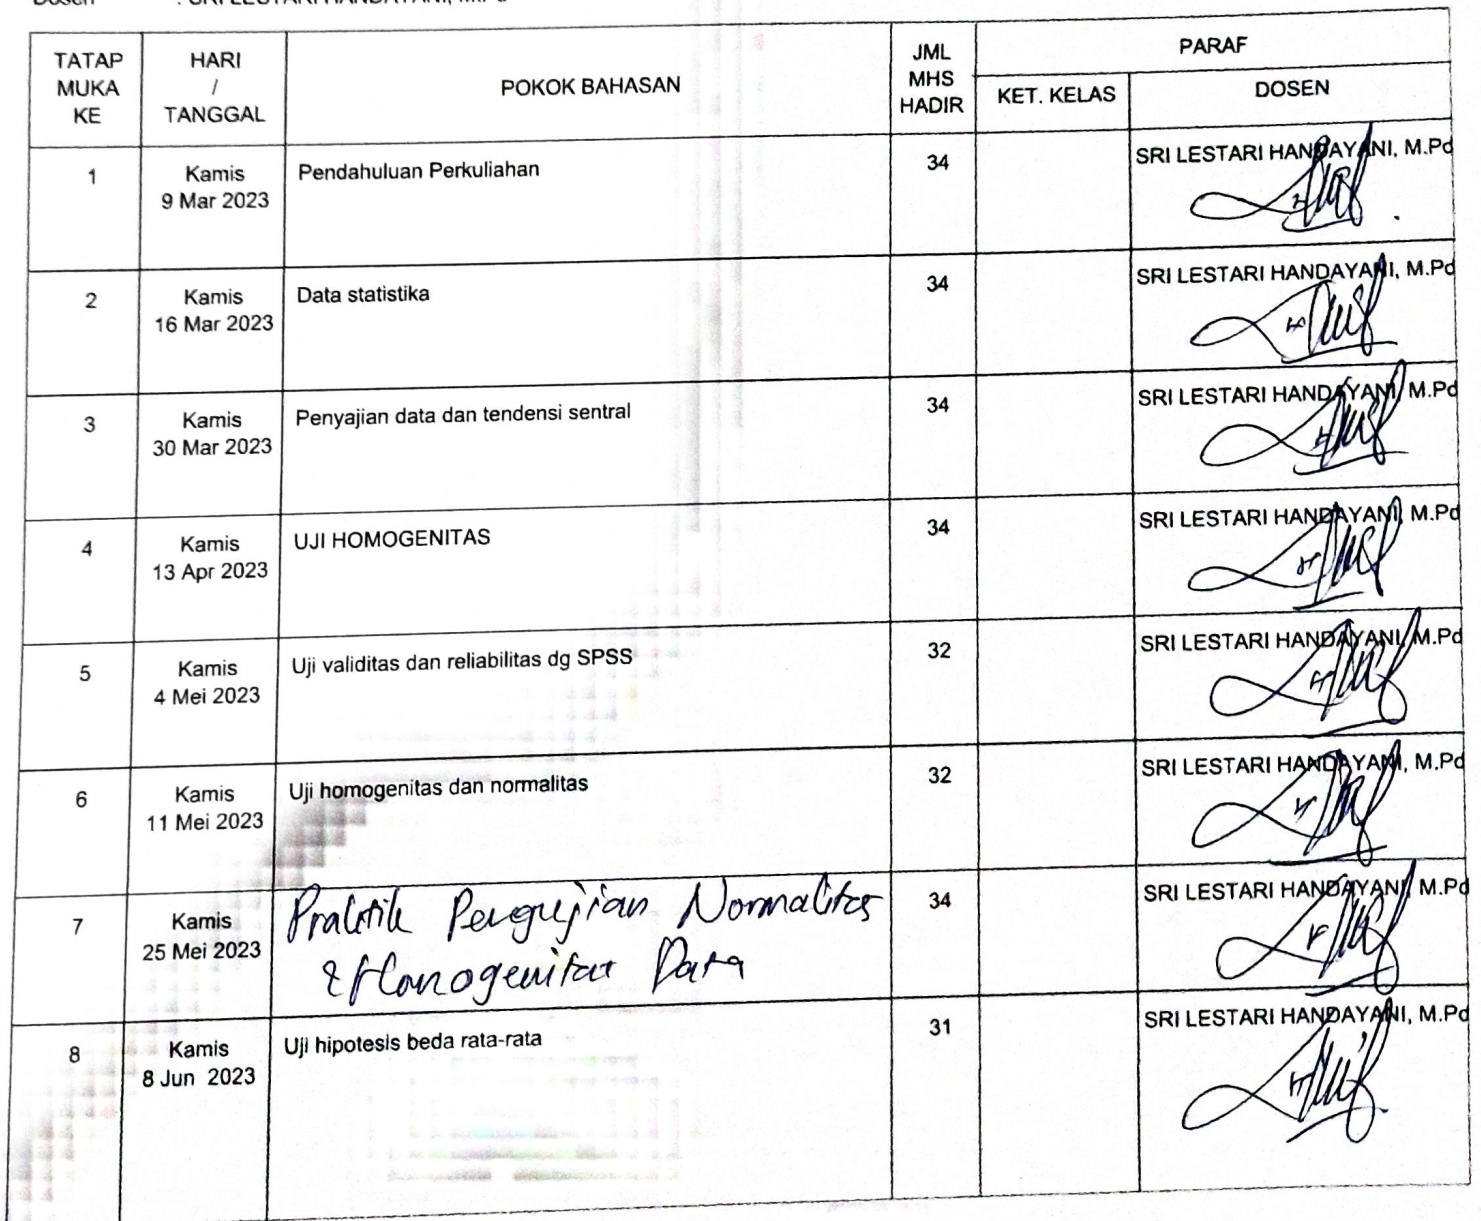 Dosen : SRI LESTARI HANDAYANI, M.Pd
TATAP MUKA KE
HARI / TANGGAL
POKOK BAHASAN
JML MHS HADIR
PARAF
KET. KELAS
DOSEN
1
Kamis
9 Mar 2023
Pendahuluan Perkuliahan
34
SRI LESTARI HANDAYANI, M.Pd
2
Kamis
16 Mar 2023
Data statistika
34
SRI LESTARI HANDAYANI, M.Pd
3
Kamis
30 Mar 2023
Penyajian data dan tendensi sentral
34
SRI LESTARI HANDAYANI, M.Pd
4
Kamis
13 Apr 2023
UJI HOMOGENITAS
34
SRI LESTARI HANDAYANI, M.Pd
5
Kamis
4 Mei 2023
Uji validitas dan reliabilitas dg SPSS
32
SRI LESTARI HANDAYANI, M.Pd
6
Kamis
11 Mei 2023
Uji homogenitas dan normalitas
32
SRI LESTARI HANDAYANI, M.Pd
7
Kamis
25 Mei 2023
Praktik Pengujian Normalitas
& Homogenitas Data
34
SRI LESTARI HANDAYANI, M.Pd
8
Kamis
8 Jun 2023
Uji hipotesis beda rata-rata
31
SRI LESTARI HANDAYANI, M.Pd